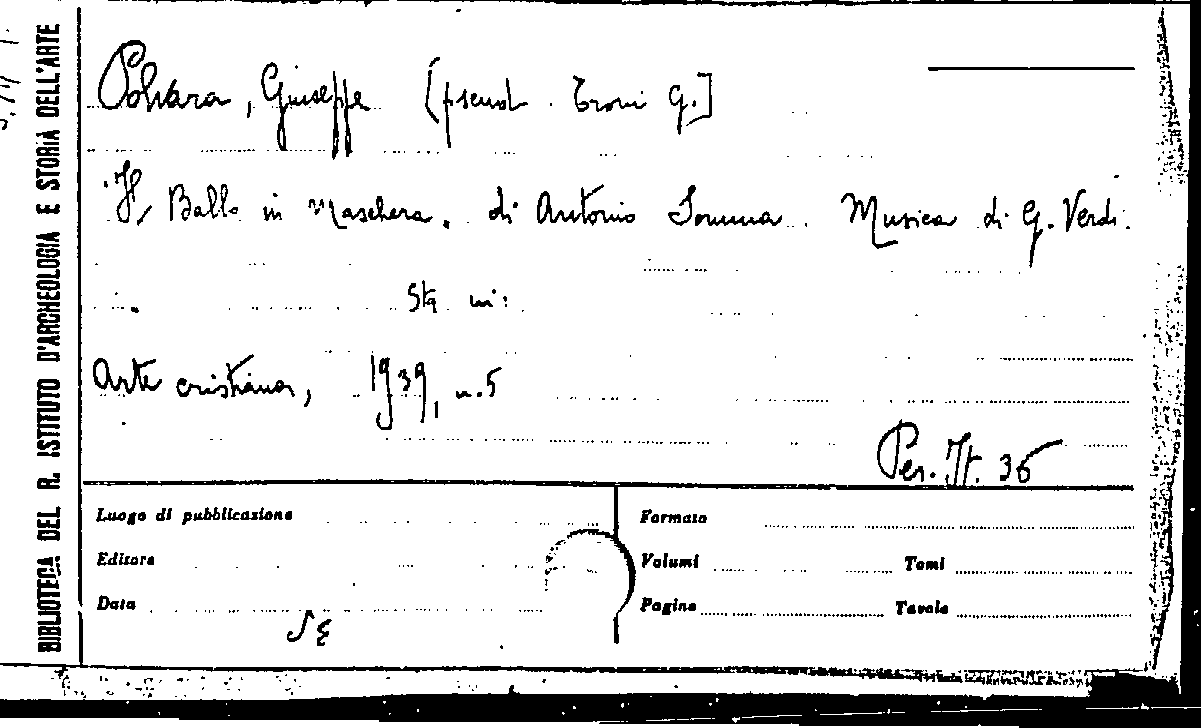 BIBLIOTECA DEL R. ISTITUTO D'ARCHEOLOGIA E STORIA DELL'ARTE
Polvara, Giuseppe [pseud. Troni G.]
"Il Ballo in Maschera. di Antonio Somma. Musica di G. Verdi.
Sta in:
Arte cristiana, 1939, n.5
Per. It. 36
Luogo di pubblicazione
Editore
Data
Formato
Volumi Tomi
Pagine Tavole